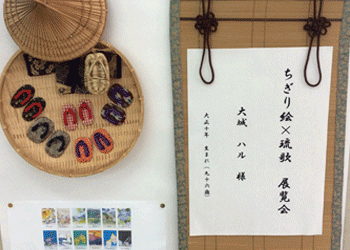 ちぎり絵×琉歌 展覧会
大城 ハル 様
大正十年 生まれ(九十六歳)